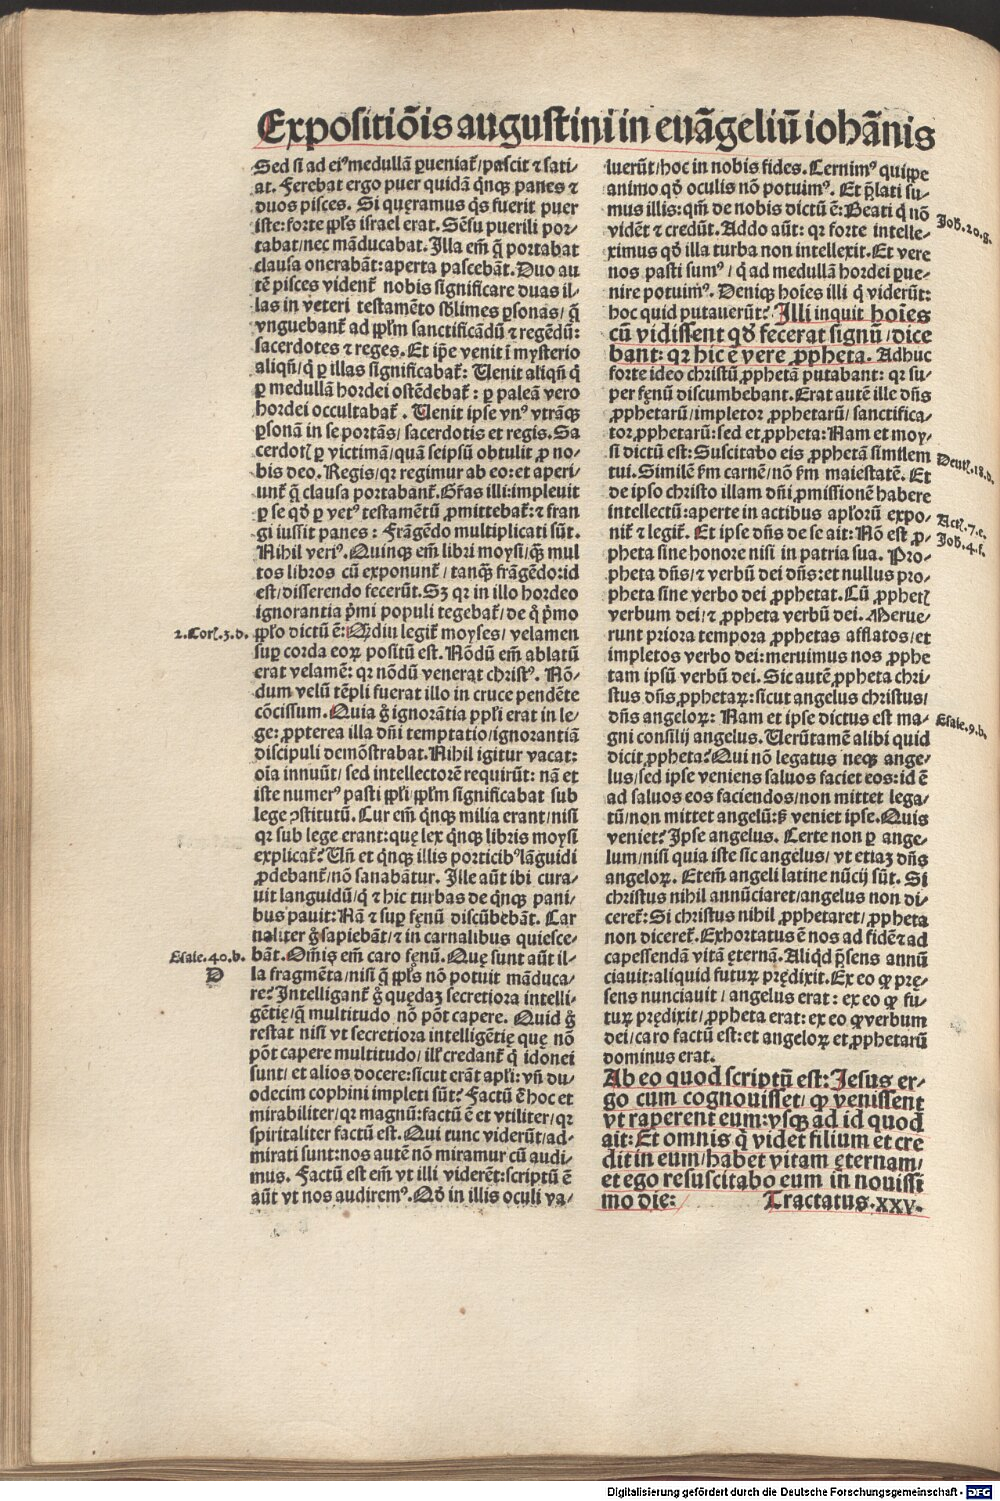 Expositiõis augustini in euãgeliũ iohãnis
Sed si ad eiꝰ medullã ꝑueniat̃/ pascit ⁊ sati-
at. Ferebat ergo puer quidã q̃nqꝫ panes ⁊
duos pisces. Si quęramus q̃s fuerit puer
iste: forte ꝓpl̃s israel erat. Sẽsu puerili por-
tabat/nec mãducabat. Illa em̃ q̃ portabat
clausa onerabãt: aperta pascebãt. Duo au
tẽ pisces vident̃ nobis significare duas il-
las in veteri testamẽto sb̃limes ꝑsonas/ q̃
vnguebant̃ ad ꝓpl̃m sanctificãdũ ⁊ regẽdũ:
sacerdotes ⁊ reges. Et ip̃e venit ĩ mysterio
aliqñ/q̃ ꝑ illas significabat̃: Uenit aliqñ q̃
ꝑ medullã hordei ostẽdebat̃: ꝑ paleã vero
hordei occultabat̃. Uenit ipse vnꝰ vtrãqꝫ
ꝑsonã in se portãs/ sacerdotis et regis. Sa
cerdotꝭ ꝑ victimã/quã seipsũ obtulit ꝓ no-
bis deo. Regis/qꝛ regimur ab eo: et aperi-
unt̃ q̃ clausa portabant̃. Gr̃as illi: impleuit
ꝑ se qð ꝑ vetꝰ testamẽtũ ꝓmittebat̃: ⁊ fran
gi iussit panes: Frãgẽdo multiplicati sũt.
Nihil veriꝰ. Quinqꝫ em̃ libri moysi/q̃ꝫ mul
tos libros cũ exponunt̃/ tanqꝫ̃ frãgẽdo: id
est/disserendo fecerũt. Sꝫ qꝛ in illo hordeo
ignorantia p̃mi populi tegebat̃/de q̃ p̃mo
2.Corꝭ.3.d.
ꝓpl̃o dictũ ẽ: Q̃diu legit̃ moyses/ velamen
suꝑ corda eoꝝ positũ est. Nõdũ em̃ ablatũ
erat velamẽ: qꝛ nõdũ venerat christꝰ. Nõ-
dum velũ tẽpli fuerat illo in cruce pendẽte
cõcissum. Quia g̃ ignorãtia ppl̃i erat in le-
ge: ꝓpterea illa dñi temptatio/ignorantiã
discipuli demõstrabat. Nihil igitur vacat:
oĩa innuũt/ sed intellectorẽ requirũt: nã et
iste numerꝰ pasti ꝓpl̃i ꝓpl̃m significabat sub
lege ꝯstitutũ. Cur em̃ q̃nqꝫ milia erant/nisi
qꝛ sub lege erant: quę lex q̃nqꝫ libris moysi
explicat̃? Uñ et q̃nqꝫ illis porticibꝰ lãguidi
ꝓdebant̃/nõ sanabãtur. Ille aũt ibi cura-
uit languidũ/q̃ ⁊ hic turbas de q̃nqꝫ pani-
bus pauit: Nã ⁊ suꝑ fęnũ discũbebãt. Car
naliter g̃ sapiebãt/⁊ in carnalibus quiesce-
Esaie.40.b.
bãt. Om̃is em̃ caro fęnũ. Quę sunt aũt il-
D
la fragmẽta/nisi q̃ ꝓpl̃s nõ potuit mãduca-
re? Intelligant̃ g̃ quędaꝫ secretiora intelli-
gẽtię/q̃ multitudo nõ põt capere. Quid g̃
restat nisi vt secretiora intelligẽtię quę nõ
põt capere multitudo/ illꝭ credant̃ q̃ idonei
sunt/et alios docere: sicut erãt apl̃i: vñ du-
odecim cophini impleti sũt? Factũ ẽ hoc et
mirabiliter/qꝛ magnũ: factũ ẽ et vtiliter/qꝛ
spiritaliter factũ est. Qui tunc viderũt/ad-
mirati sunt: nos autẽ nõ miramur cũ audi-
mus. Factũ est em̃ vt illi viderẽt: scriptũ ẽ
aũt vt nos audiremꝰ. Qð in illis oculi va-
luerũt/hoc in nobis fides. Cernimꝰ quippe
animo qð oculis nõ potuimꝰ. Et p̃lati su-
mus illis: qm̃ de nobis dictũ ẽ: Beati q̃ nõ
Joh.20.g.
vidẽt ⁊ credũt. Addo aũt: qꝛ forte intelle-
ximus qð illa turba non intellexit. Et vere
nos pasti sumꝰ/ q̃ ad medullã hordei ꝑue-
nire potuimꝰ. Deniqꝫ hoĩes illi q̃ viderũt:
hoc quid putauerũt? Illi inquit hoĩes
cũ vidissent qð fecerat signũ/dice
bant: qꝛ hic ẽ vere ꝓpheta. Adhuc
forte ideo christũ ꝓphetã putabant: qꝛ su-
per fęnũ discumbebant. Erat autẽ ille dñs
ꝓphetarũ/impletor ꝓphetarũ/ sanctifica-
tor ꝓphetarũ: sed et ꝓpheta: Nam et moy-
si dictũ est: Suscitabo eis ꝓphetã similem
Deutꝭ.18.d.
tui. Similẽ f̃m carnẽ/nõ f̃m maiestatẽ. Et
de ipso christo illam dñi ꝓmissionẽ habere
intellectũ: aperte in actibus apl̃orũ expo-
Actꝭ.7.e.
nit̃ ⁊ legit̃. Et ipse dñs de se ait: Nõ est ꝓ-
Joh.4.f.
pheta sine honore nisi in patria sua. Pro-
pheta dñs/⁊ verbũ dei dñs: et nullus pro-
pheta sine verbo dei ꝓphetat. Cũ ꝓphetꝭ
verbum dei/⁊ ꝓpheta verbũ dei. Merue-
runt priora tempora ꝓphetas afflatos/et
impletos verbo dei: meruimus nos ꝓphe
tam ipsũ verbũ dei. Sic autẽ ꝓpheta chri-
stus dñs ꝓphetaꝝ: sicut angelus christus/
dñs angeloꝝ: Nam et ipse dictus est ma-
Esaie.9.b.
gni consilij angelus. Uerũtamẽ alibi quid
dicit ꝓpheta? Qui nõ legatus neqꝫ ange-
lus/sed ipse veniens saluos faciet eos: id ẽ
ad saluos eos faciendos/non mittet lega-
tũ/non mittet angelũ: ß veniet ipse. Quis
veniet? Ipse angelus. Certe non ꝑ ange-
lum/nisi quia iste sic angelus/ vt etiaꝫ dñs
angeloꝝ. Etem̃ angeli latine nũcij sũt. Si
christus nihil annũciaret/angelus non di-
ceret̃: Si christus nihil ꝓphetaret/ꝓpheta
non diceret̃. Exhortatus ẽ nos ad fidẽ ⁊ ad
capessendã vitã ęternã. Aliqd̃ p̃sens annũ
ciauit: aliquid futuꝝ prędixit. Ex eo ꝙ prę-
sens nunciauit/ angelus erat: ex eo ꝙ fu-
tuꝝ prędixit/ꝓpheta erat: ex eo ꝙ verbum
dei/caro factũ est: et angeloꝝ et ꝓphetarũ
dominus erat.
Ab eo quod scriptũ est: Jesus er-
go cum cognouisset/ ꝙ venissent
vt raperent eum: vsqꝫ ad id quod
ait: Et omnis q̃ videt filium et cre
dit in eum/habet vitam ęternam/
et ego resuscitabo eum in nouissi
mo die: Tractatus.xxv.
Digitalisierung gefördert durch die Deutsche Forschungsgemeinschaft - DFG